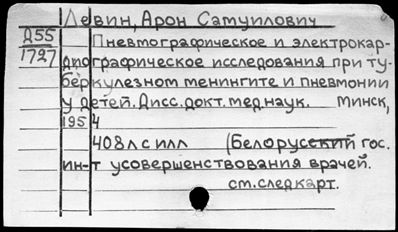 Левин, Арон Самуилович
Д55
1727
Пневмографическое и электрокар-
диографическое исследования при ту-
беркулезном менингите и пневмонии
у детей. Дисс. докт. мед. наук. Минск,
1954
408 л с илл (Белорусский гос.
ин-т усовершенствования врачей.
см. след карт.